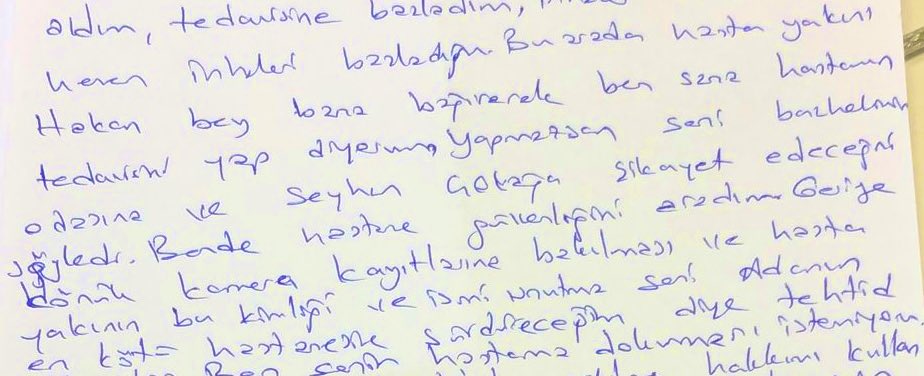 aldım, tedavisine başladım,
hemen inhaler başladığım. Bu arada hasta yakını
Hakan bey bana bağırarak ben sana hastanın
tedavisini yap diyorum, yapmazsan seni başhekimin
odasına ve Seyhan şikayet edeceğini
söyledi. Bende hastane güvenliğini aradım. Geriye
dönük kamera kayıtlarına bakılması ve hasta
yakının bu kimliği ve ismi unutma seni Adanın
en kötü hastanesine sürdüreceğim diye tehtid
Ben senin hastama dokunmanı istemiyorum
hakkımı kullan